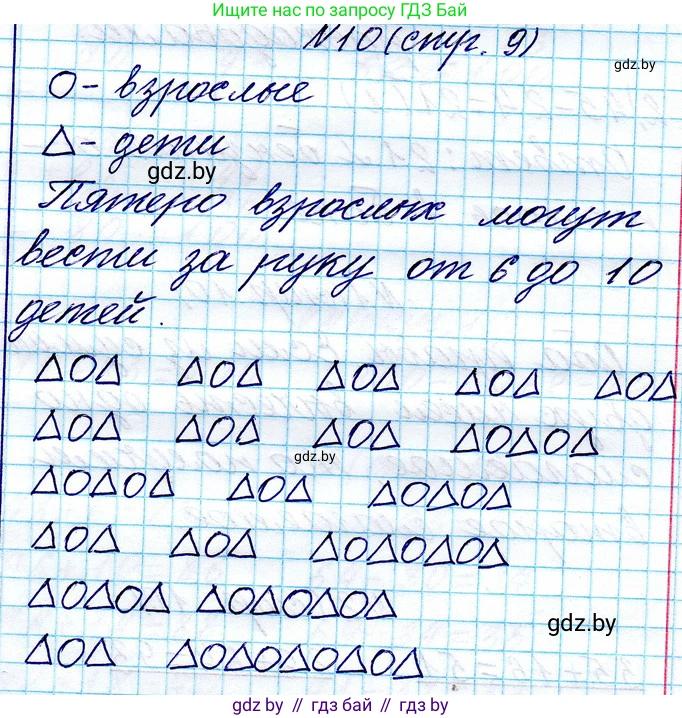 Ищите нас по запросу ГДЗ Бай
№10 (стр. 9)
gdz.by
О - взрослые
Δ - дети
gdz.by
Пятеро взрослых могут
вести за руку от 6 до 10
детей.
ΔОΔ ΔОΔ ΔОΔ ΔОΔ ΔОΔ
ΔОΔ ΔОΔ ΔОΔ ΔОΔОΔ
gdz.by
ΔОΔОΔ ΔОΔ ΔОΔОΔ
ΔОΔ ΔОΔ ΔОΔОΔОΔ
ΔОΔОΔ ΔОΔОΔОΔ
gdz.by
ΔОΔ ΔОΔОΔОΔОΔ
gdz.by // гдз бай // gdz.by